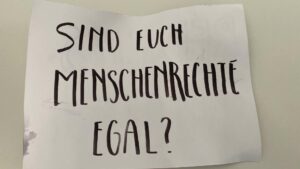 SIND EUCH
MENSCHENRECHTE
EGAL?